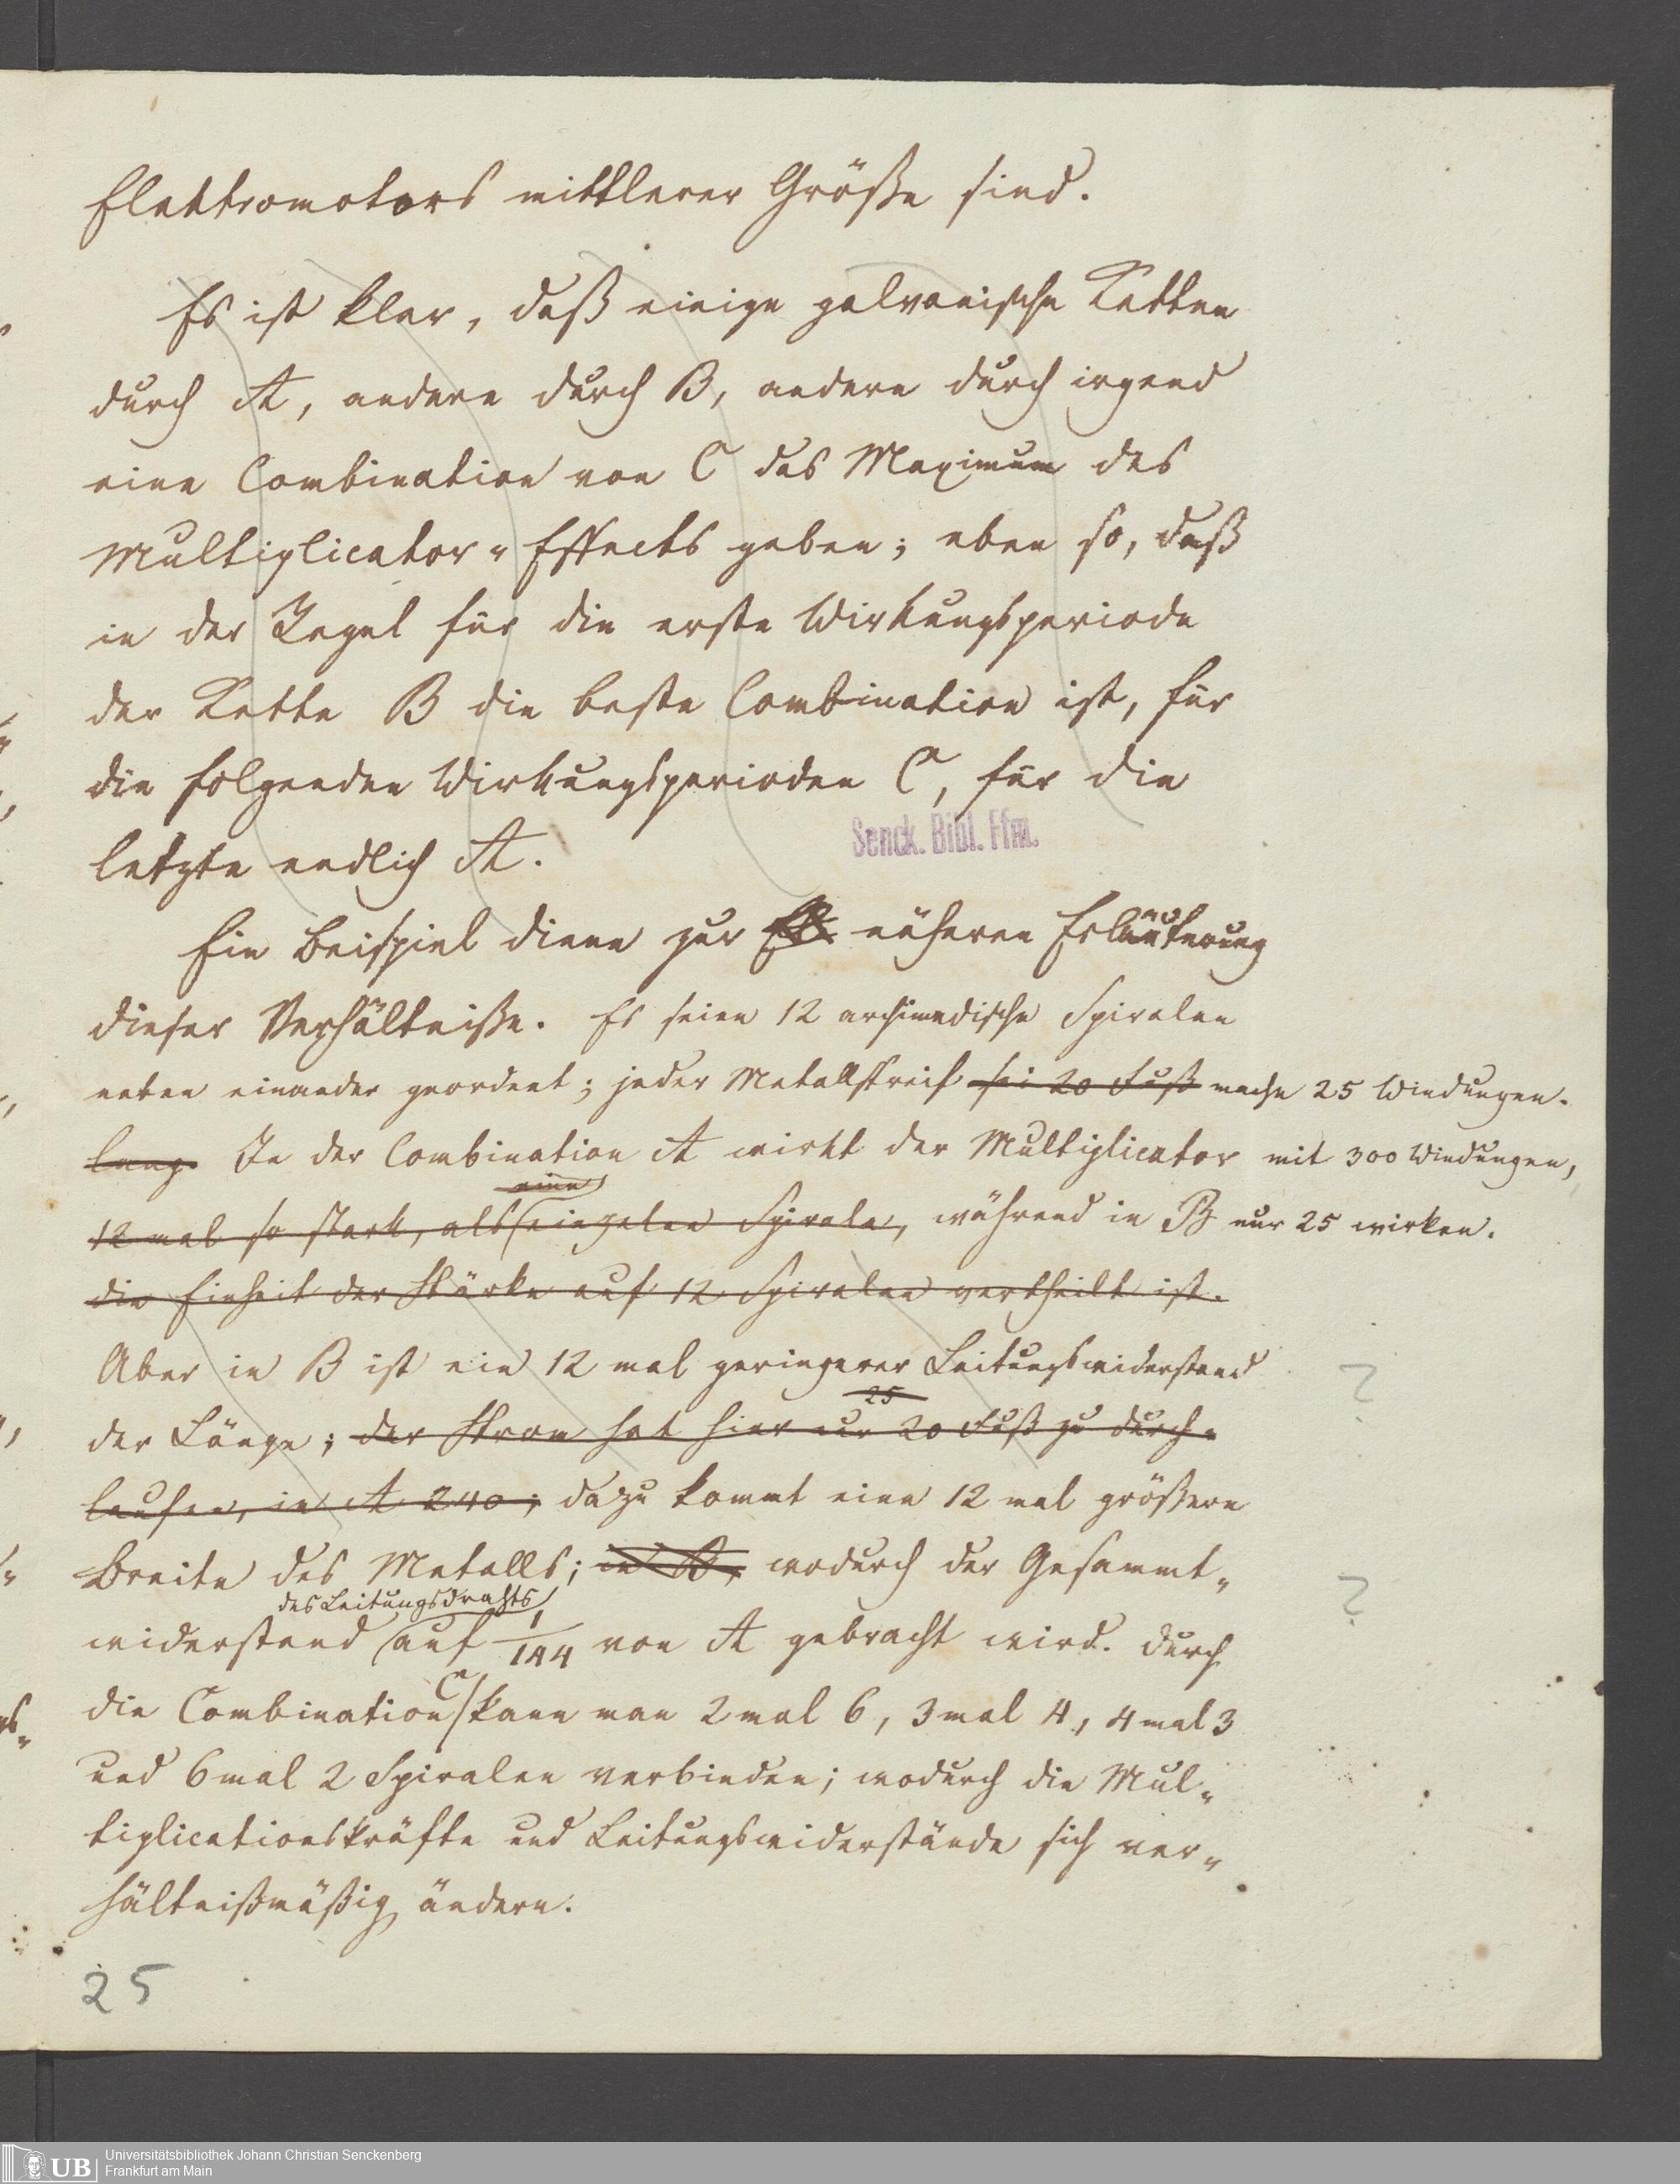 Elektromotors mittlerer Größe sind.
Es ist klar, daß einige galvanische Ketten
durch A, andere durch B, andere durch irgend
eine Combination von C das Maximum des
Multiplicator-Effects geben; eben so, daß
in der Regel für die erste Wirkungsperiode
der Kette B die beste Combination ist, für
die folgenden Wirkungsperioden C, für die
letzte endlich A.
Senck. Bibl. Ffm.
Ein Beispiel diene zur näheren Erläuterung
dieser Verhältniße. Es seien 12 archimedische Spiralen
neben einander geordnet; jeder Metallstreif sei 20 Fuß mache 25 Windungen.
lang. In der Combination A wirkt der Multiplicator mit 300 Windungen,
eine
12 mal so stark, als einzelne Spirale, während in B nur 25 wirken.
die Einheit der Stärke auf 12 Spiralen vertheilt ist.
Aber in B ist ein 12 mal geringerer Leitungswiderstand
?
25
der Länge; der Strom hat hier nur 20 Fuß zu durch-
laufen, in A 240; dazu kommt eine 12 mal größere
Breite des Metalls; in B, wodurch der Gesammt-
?
des Leitungsdrahts
widerstand auf 1/144 von A gebracht wird. Durch
die Combination C kann man 2 mal 6, 3 mal 4, 4 mal 3
und 6 mal 2 Spiralen verbinden; wodurch die Mul-
tiplicationskräfte und Leitungswiderstände sich ver-
hältnißmäßig ändern.
25
UB
Universitätsbibliothek Johann Christian Senckenberg
Frankfurt am Main